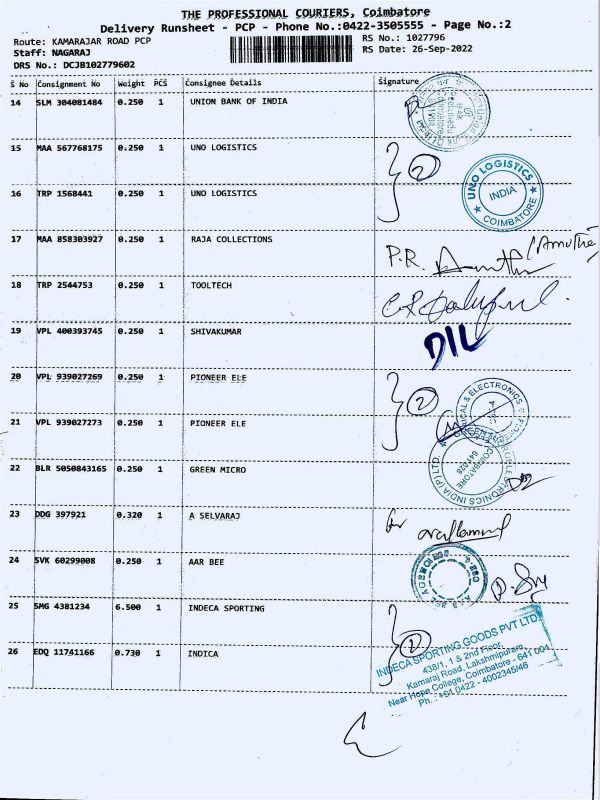 THE PROFESSIONAL COURIERS, Coimbatore
Delivery Runsheet - PCP - Phone No.:0422-3505555 - Page No.:2
Route: KAMARAJAR ROAD PCP
RS No.: 1027796
Staff: NAGARAJ
RS Date: 26-Sep-2022
DRS No.: DCJB102779602
S No Consignment No Weight PCS Consignee Details Signature
14 SLM 304081484 0.250 1 UNION BANK OF INDIA
15 MAA 567768175 0.250 1 UNO LOGISTICS
2
16 TRP 1568441 0.250 1 UNO LOGISTICS
UNO LOGISTICS
INDIA
COIMBATORE
17 MAA 858303927 0.250 1 RAJA COLLECTIONS
P.R.
(Amutha)
18 TRP 2544753 0.250 1 TOOLTECH
19 VPL 400393745 0.250 1 SHIVAKUMAR
DIL
20 VPL 939027269 0.250 1 PIONEER ELE
2
21 VPL 939027273 0.250 1 PIONEER ELE
22 BLR 5050843165 0.250 1 GREEN MICRO
COIMBATORE
641028
23 DDG 397921 0.320 1 A SELVARAJ
for
24 SVK 60299008 0.250 1 AAR BEE
25 SMG 4381234 6.500 1 INDECA SPORTING
2
26 EDQ 11741166 0.730 1 INDICA
INDECA SPORTING GOODS PVT LTD
438/1, 1 & 2nd Floor,
Kamaraj Road, Lakshmipuram,
Near Hope College, Coimbatore - 641 004
Ph. : +91 0422 - 4002345/46